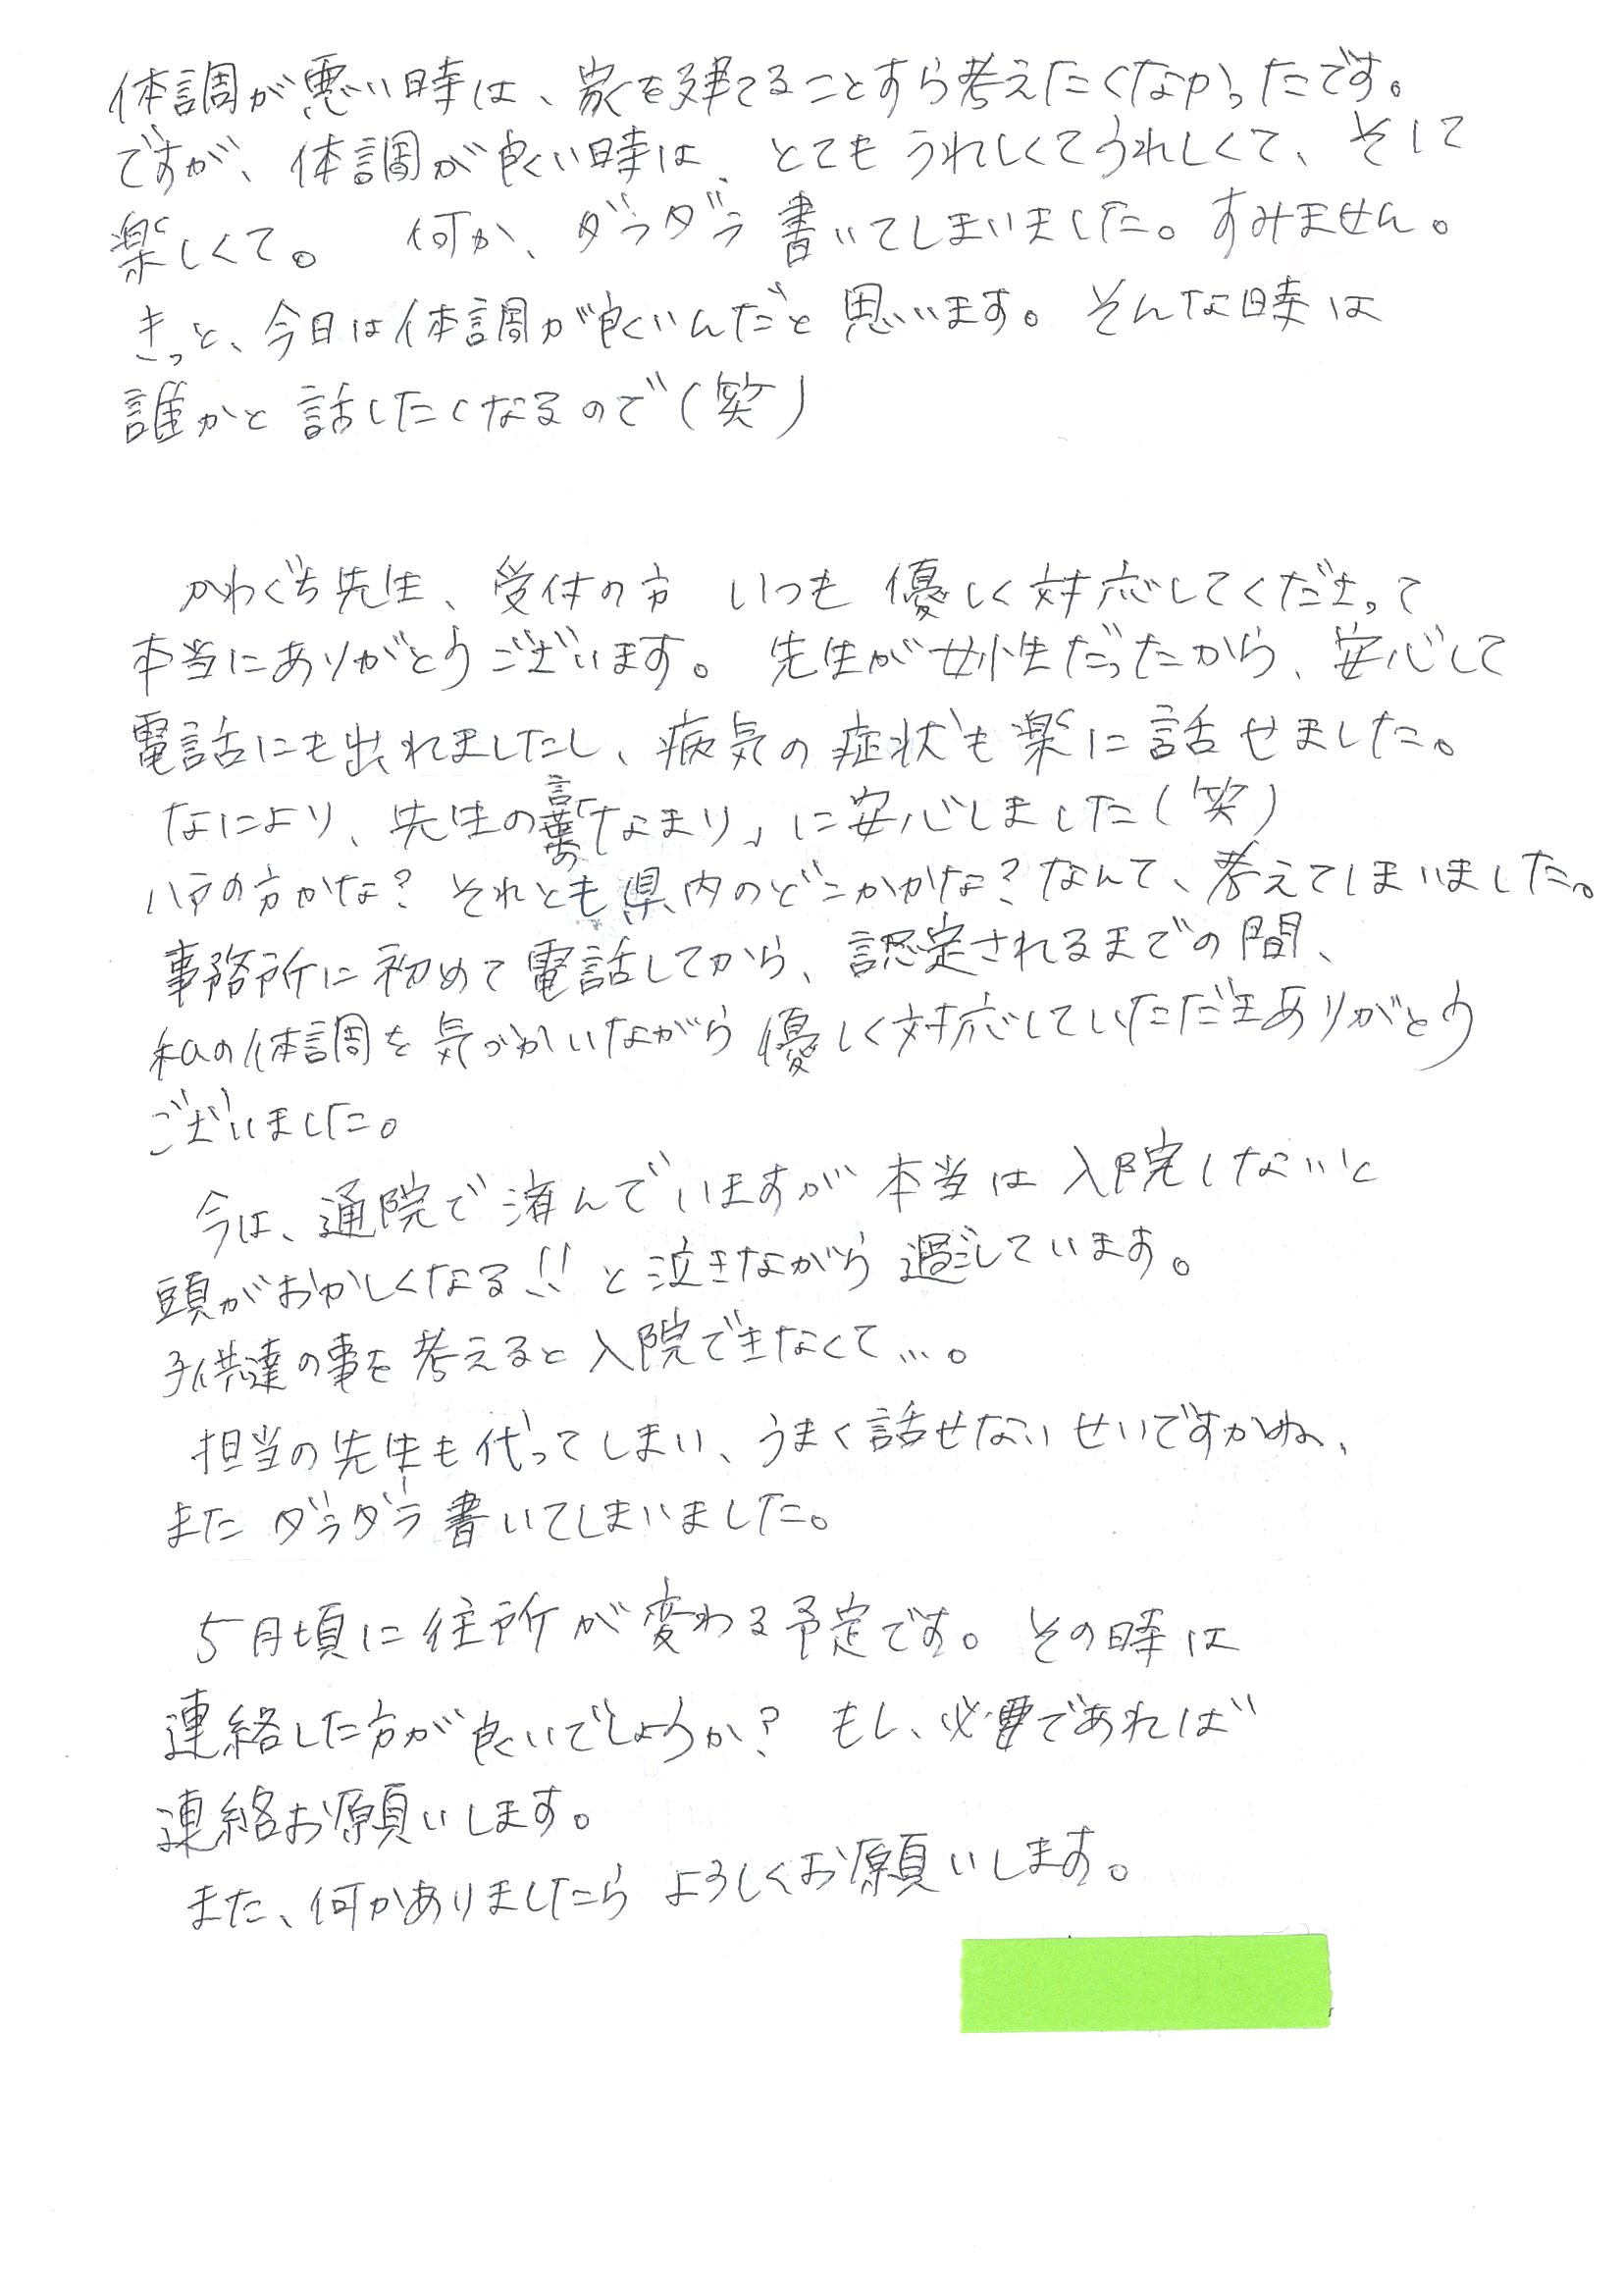 体調が悪い時は、家を建てることすら考えたくなかったです。
ですが、体調が良い時は、とてもうれしくてうれしくて、そして
楽しくて。 何か、ダラダラ書いてしまいました。すみません。
きっと、今日は体調が良いんだと思います。そんな時は
誰かと話したくなるので(笑)
かわぐち先生、受付の方 いつも優しく対応してくださって
本当にありがとうございます。先生が女性だったから、安心して
電話にも出れましたし、病気の症状も楽に話せました。
なにより、先生の言葉の「なまり」に安心しました(笑)
八戸の方かな?それとも県内のどこかかな?なんて、考えてしまいました。
事務所に初めて電話してから、認定されるまでの間、
私の体調を気づかいながら優しく対応していただきありがとう
ございました。
今は、通院で済んでいますが本当は入院しないと
頭がおかしくなる!!と泣きながら過ごしています。
子供達の事を考えると入院できなくて…。
担当の先生も代ってしまい、うまく話せないせいですかね、
またダラダラ書いてしまいました。
5月頃に住所が変わる予定です。その時は
連絡した方が良いでしょうか?もし、必要であれば
連絡お願いします。
また、何かありましたらよろしくお願いします。